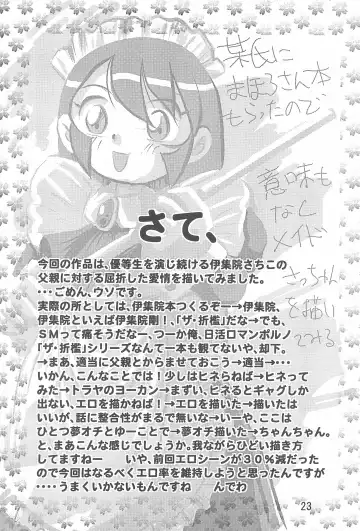 某氏に
まほろさん本
もらったので
意味も
なく
メイド
さっちゃん
を描い
てみる。
さて、
今回の作品は、優等生を演じ続ける伊集院さちこの
父親に対する屈折した愛情を描いてみました。
・・・ごめん、ウソです。
実際の所としては、伊集院本つくるぞー→伊集院、
伊集院といえば伊集院剛！、「ザ・折檻」だな→でも、
ＳＭって痛そうだなー、つーか俺、日活ロマンポルノ
「ザ・折檻」シリーズなんて一本も観てないや、却下。
→まあ、適当に父親とからませておこう→適当→・・・
いかん、こんなことでは！少しはヒネらねば→ヒネって
みた→トラヤのヨーカン→まずい、ヒネるとギャグしか
出ない、エロを描かねば！→エロを描いた→描いたは
いいが、話に整合性がまるで無いな→いーや、ここは
ひとつ夢オチとゆーことで→夢オチ描いた→ちゃんちゃん。
と、まあこんな感じでしょうか。我ながらひどい描き方
してますねー　いや、前回エロシーンが３０％減だった
ので今回はなるべくエロ率を維持しようと思ったんですが
・・・・うまくいかないもんですね　んでわ
23